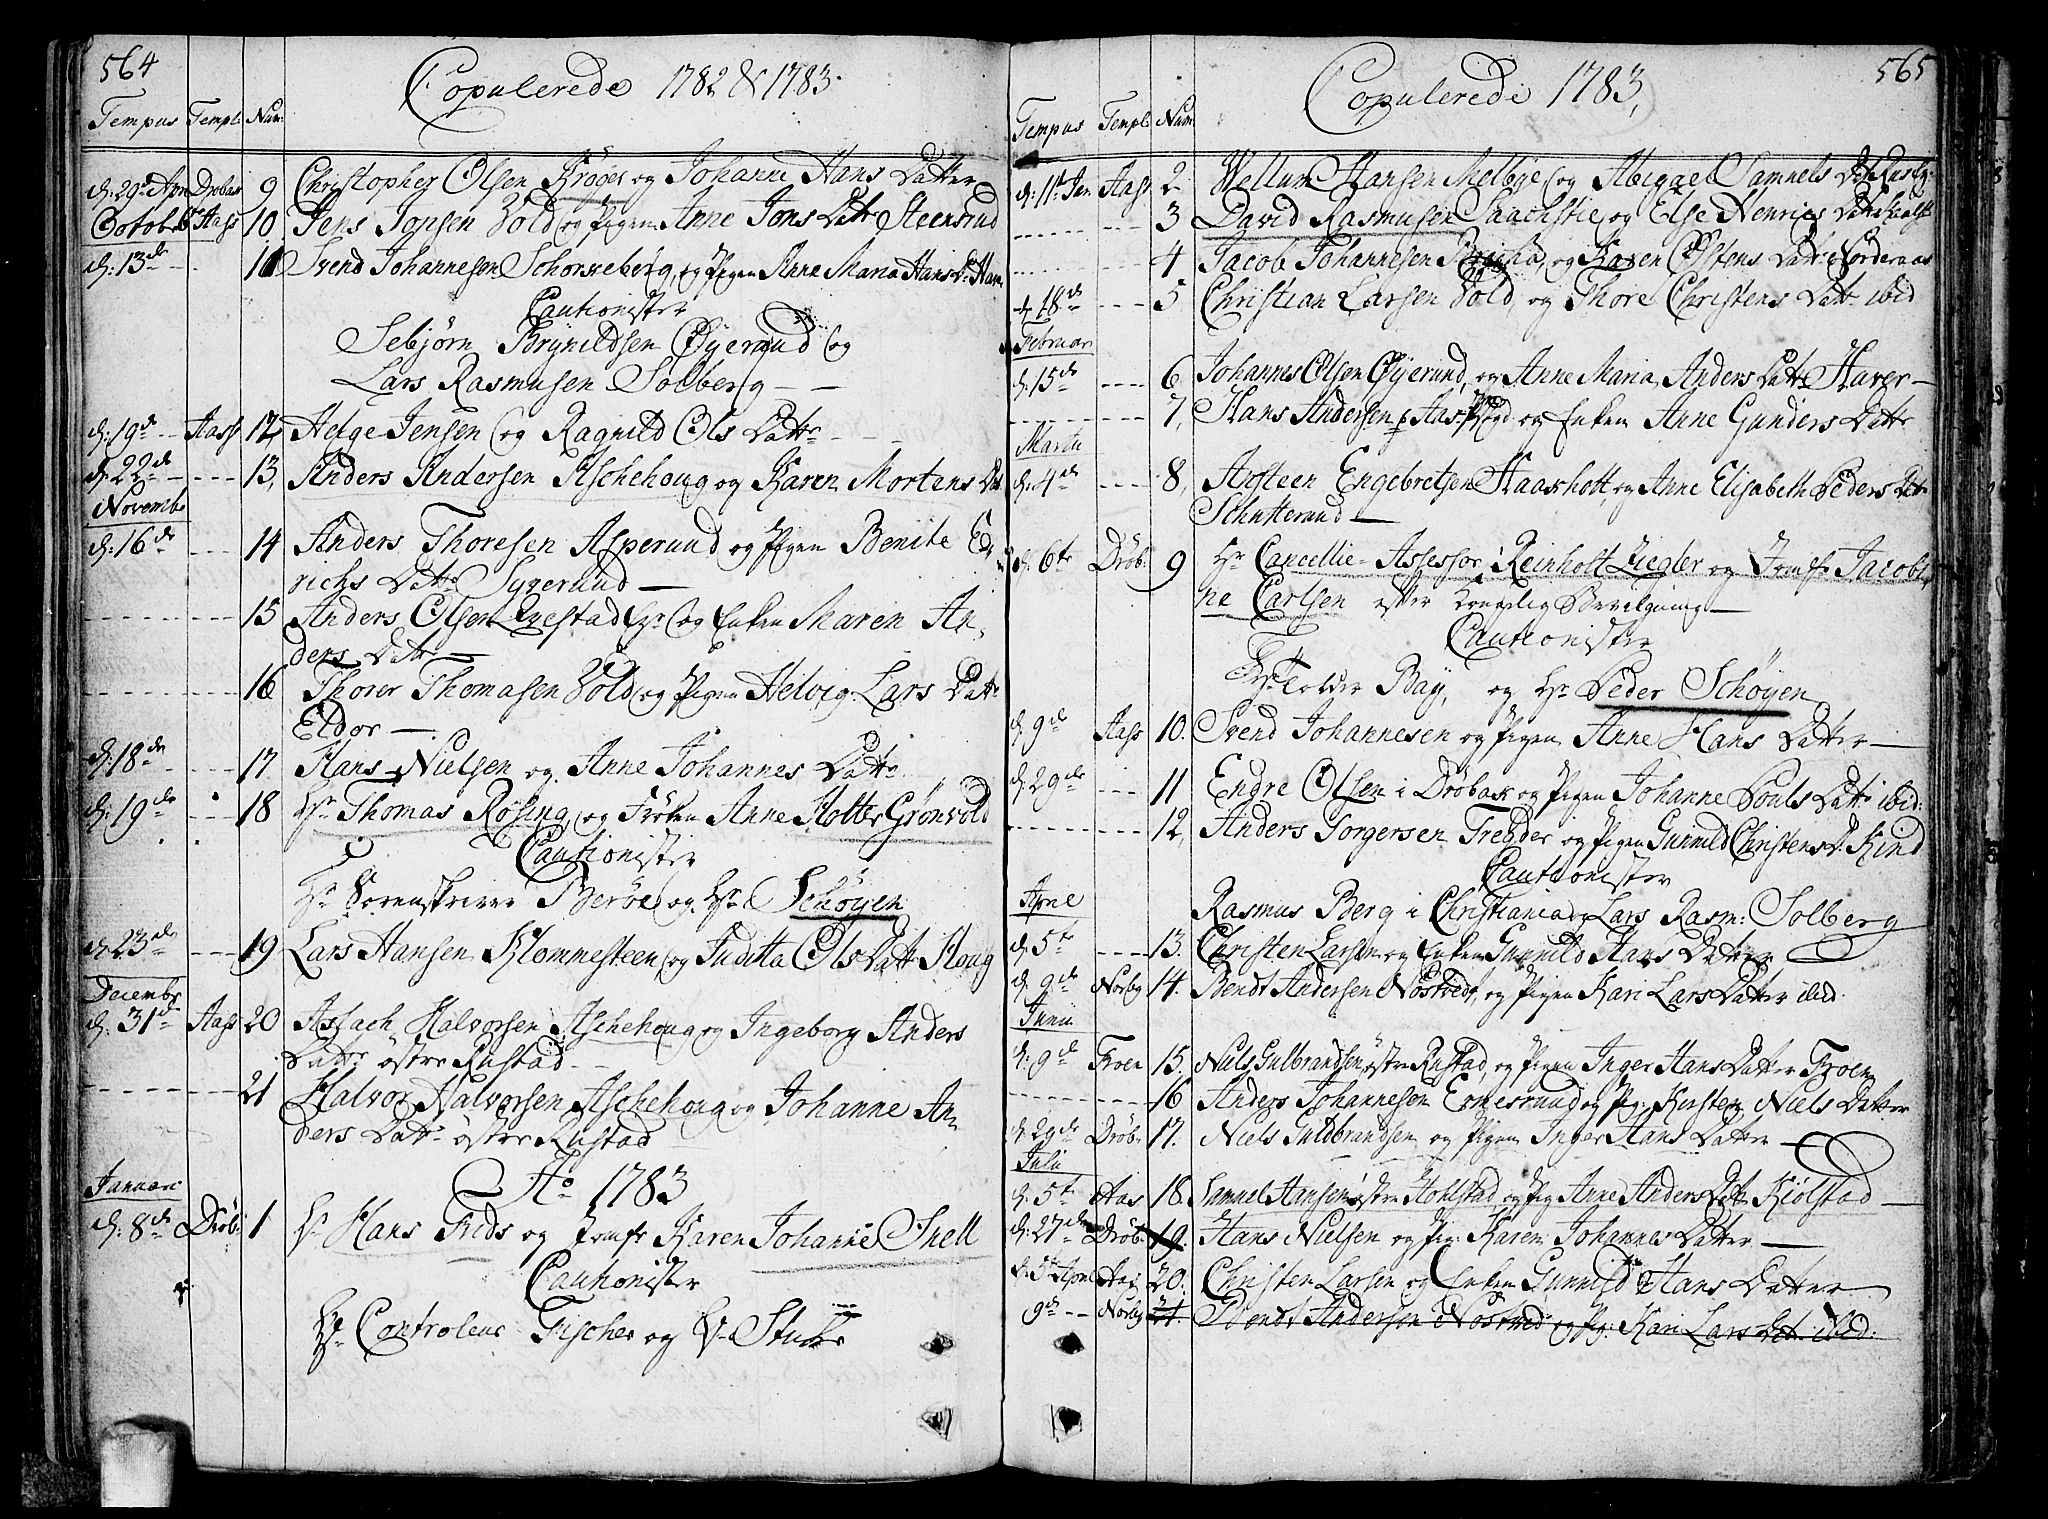 564
Copulerede 1782 & 1783.
Tempus Templ: Num:
d: 29de Apr Drøbak 9 Christopher Olsen Krøger og Johanne Hans Datter
Octobr Aass 10 Jens Jonsen Vold og Pigen Anne Jons Datr Steensrud
d: 13de 11 Svend Johannesen Schorkeberg, og Pigen Anne Maria Hans Dr Haver
Cautionister
Sebjørn Brynildsen Øyerud og
Lars Rasmusen Solberg — —
d: 19de Aass 12 Helge Jensen og Ragnild Ols Datr
d: 22de ---- 13, Anders Andersen Aschehoug og Karen Mortens Dat
Novembr
d: 16de --- 14 Anders Thoresen Asperund og Pigen Benite Ed,
richs Datr Syverund —
15 Anders Olsen og Enken Maren An,
ders Datr —
16 Thorer Thomasen Vold og Pigen Helvig Lars Datr
Eldor —
d: 18de ---- 17 Hans Nielsen og Anne Johannes Datr
d: 19de --- 18 Hr Thomas Rosing og Frøken Anne Holter Grønvold
Cautionister
Hr Sorenskriver Berøe og Hr Schøyen
d: 23de --- 19 Lars Hansen Klommesteen og Juditta Ols Datr Houg
Decembr
d: 31de Aass 20 Aslach Halvorsen Aschehoug og Ingeborg Anders
Datr østre Rustad --
21 Halvor Halvorsen Aschehoug og Johanne An,
ders Datr østre Rustad
Ao 1783
Januari
d: 8de Drøb: 1 Hr Hans Friis og Jomfr Karen Johanne Snell
Cautionister
Hr Controleur Fischer og Hr
565
Copulerede 1783,
Tempus Templ: Num:
d: 11te Jan Aass 2 Wellum Hansen Melbye og Abigael Samuels Dr
3 David Rasmusen Saachstie og Else Henrics Datr
4 Jacob Johannesen og Karen Østens Datr Norderaas
d: 18de ---- 5 Christian Larsen Vold, og Thore Christens Datr ibid
Februari
d: 15de ---- 6 Johannes Olsen Øyerund, og Anne Maria Anders Datr Haver —
---- 7, Hans Andersen og Enken Anne Gunders Datr
Martii
d: 4de ---- 8, Arsteen Engebretsen Haasholt, og Anne Elisabeth Peders Datr
Schutterund —
d: 6te Drøb: 9 Hr Cancellie-Assessor Reinholt Ziegler og Jomfr Jacobi,
ne Carlsen efter kongelig Bevilgning —
Cautionister
Hr Tolder Bay, og Hr Peder Schøyen
d: 9de Aass 10. Svend Johannesen og Pigen Anne Hans Datter —
d: 29de --- 11 Endre Olsen i Drøback og Pigen Johanne Pouls Datr ibid:
12, Anders Torgersen Treyder og Pigen Gunnild Christens D. Kind
Cautionister
Rasmus Berg i Christiania og Lars Rasm: Solberg
April
d: 5te ---- 13. Christen Larsen og Enken Gunnild Hans Datter
d: 9de Norby 14. Bendt Andersen Nostvedt, og Pigen Kari Lars Datter ibid.
Junii
d: 9de Froen 15. Niels Gulbrandsen østre Rustad, og Pigen Inger Hans Datter Froen
16 Anders Johannesen Ermesrund og Pig: Kirsten Niels Datter
d: 29de Drøb. 17. Niels Guldbrandsen og Pigen Inger Hans Datter —
Julii
d: 5te Aas 18. Samuel Hansen østre Hohlstad og Pig Anne Anders Datr Kiølstad —
d: 27de Drøb: 19. Hans Nielsen og Pig: Karen Johannes Datter —
d: 5te April Aas 20. Christen Larsen og Enken Gunnild Hans Datter
9de -- Norby 21. Bendt Andersen Nostved og Pig: Kari Lars Dat: ibid: